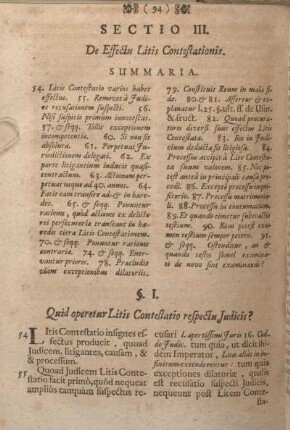 ( 94 )
SECTIO III.
De Effectu Litis Contestationis.
SUMMARIA.
54. Litis Contestatio varios habet
effectus. 55. Removet à Judi-
ce recusationem suspecti. 56.
Nisi suspicio primùm innotescat.
57. & seqq. Tollit exceptionem
incompetentiæ. 60. Si non sit
absoluta. 61. Perpetuat Ju-
risdictionem delegati. 62. Ex
parte litigantium inducit quasi-
contractum. 63. Actionum perpe-
tuat usque ad 40. annos. 64.
Facit eam transire ad & in hære-
des. 65. & seqq. Ponuntur
rationes, quid actiones ex delictis
persecutoriæ transeant in hæ-
redes citra Litis Contestationem.
70. & seqq. Ponuntur rationes
contraria. 74. & seqq. Ener-
vantur priores. 78. Præcludit
exceptionibus dilatoriis.
79. Constituit Reum in mala fi-
de. 80. & 81. Affertur & ex-
planatur l. 25. §. ult. ff. de Usur.
& fruct. 82. Quad procurato-
res diversi sunt effectus Litis
Contestatæ. 83. Res in Ju-
dicium deducta fit litigiosa. 84.
Processus accepit à Lite Contesta-
tum valorem. 85. Nisi po-
test antea in principali causa pro-
cedi. 86. Excepto processu inqui-
sitorio. 87. Processu matrimonia-
li. 88. Processu in contumaciam.
89. Et quando timetur subtractio
testium. 90. Rem potest ex-
amen testium semper petere. 91.
& seqq. Ostenditur, an &
quando testes semel examina-
ti de novo sint examinandi?
§. I.
Quid operetur Litis Contestatio respectu Judicis?
54 LItis Contestatio insignes ef-
fectus producit, quoad
Judicem, litigantes, causam, &
& processum.
55 Quoad Judicem Litis Conte-
statio facit primò, quòd nequeat
amplius tanquam suspectus re-
cusari l. apertissimi Juris 16. Cod.
de Judic. tum quia, ut dicit ibi-
dem Imperator,
tum quia
exceptiones dilatoriæ, quasi
est recusatio suspecti Judicis,
nequeunt post Litem Conte-
sta-